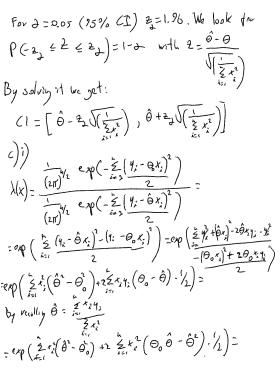 For α=0.05 (95% CI) z_α=1.96. We look for
P(-z_α ≤ Z ≤ z_α)=1-α with Z = (θ̂-θ)/√(1/Σ_{i=1}^n x_i²)
By solving it we get:
CI = [θ̂ - z_α√(1/Σ_{i=1}^n x_i²), θ̂ + z_α√(1/Σ_{i=1}^n x_i²)]
c) i)
λ(x) = (1/(2π)^{n/2} exp(-Σ_{i=1}^n (y_i-θ_0x_i)²/2)) / (1/(2π)^{n/2} exp(-Σ_{i=1}^n (y_i-θ̂x_i)²/2)) =
=exp(Σ_{i=1}^n ((y_i-θ̂x_i)²-(y_i-θ_0x_i)²)/2) =exp((Σ_{i=1}^n y_i²+(θ̂x_i)²-2θ̂x_iy_i-y_i²
-(θ_0x_i)²+2θ_0x_iy_i)/2)
=exp(Σ_{i=1}^n x_i²(θ̂²-θ_0²)+2Σ_{i=1}^n x_iy_i(θ_0-θ̂)·1/2)=
by recalling θ̂ = Σ_{i=1}^n x_iy_i/Σ_{i=1}^n x_i²
=exp(Σ_{i=1}^n x_i²(θ̂²-θ_0²)+2Σ_{i=1}^n x_i²(θ_0θ̂-θ̂²)·1/2)=